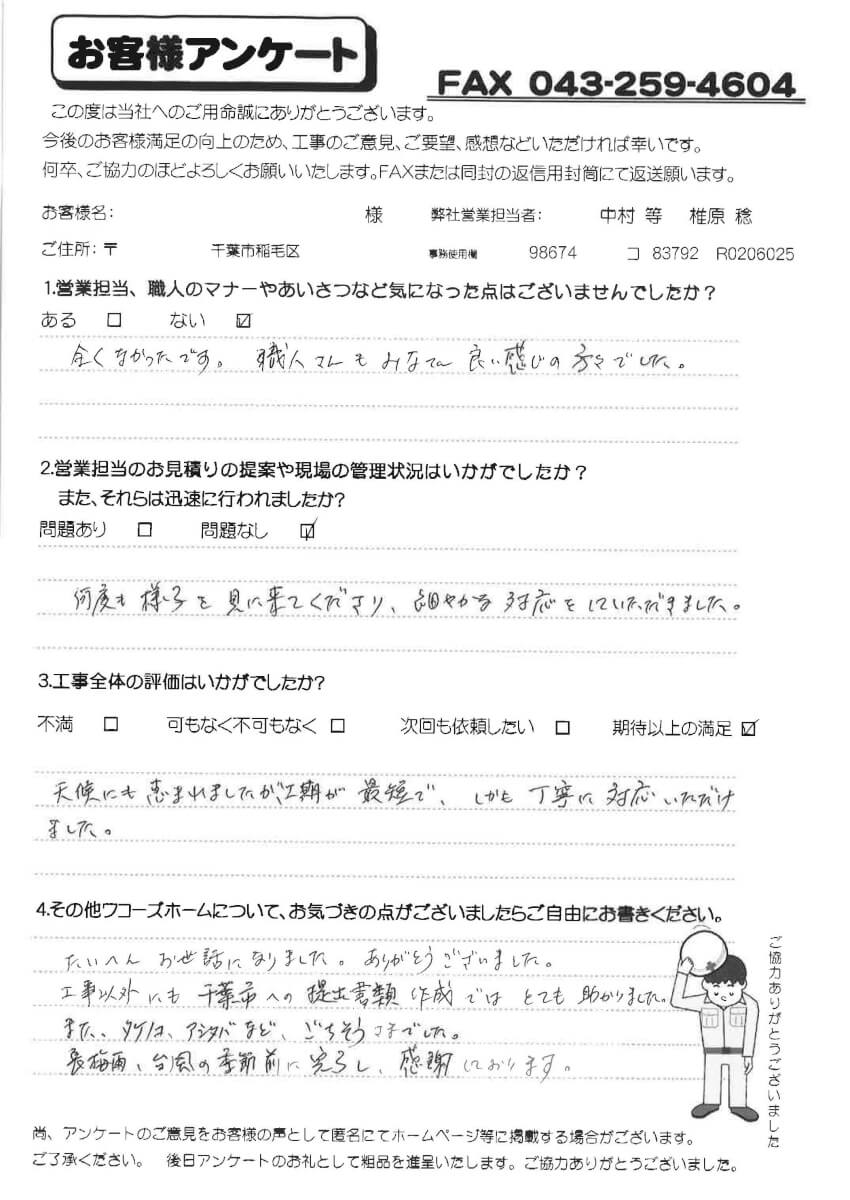 お客様アンケート
FAX 043-259-4604
この度は当社へのご用命誠にありがとうございます。
今後のお客様満足の向上のため、工事のご意見、ご要望、感想などいただければ幸いです。
何卒、ご協力のほどよろしくお願いいたします。FAXまたは同封の返信用封筒にて返送願います。
お客様名: 様 弊社営業担当者: 中村 等 椎原 稔
ご住所:〒 千葉市稲毛区 事務使用欄 98674 コ 83792 R0206025
1.営業担当、職人のマナーやあいさつなど気になった点はございませんでしたか?
ある □ ない ☑
全くなかったです。職人さんもみなさん良い感じの方々でした。
2.営業担当のお見積りの提案や現場の管理状況はいかがでしたか?
また、それらは迅速に行われましたか?
問題あり □ 問題なし ☑
何度も様子を見に来てくださり、細やかな対応をしていただきました。
3.工事全体の評価はいかがでしたか?
不満 □ 可もなく不可もなく □ 次回も依頼したい □ 期待以上の満足 ☑
天候にも恵まれましたが、工期が最短で、しかも丁寧に対応いただけ
ました。
4.その他ワコーズホームについて、お気づきの点がございましたらご自由にお書きください。
たいへんお世話になりました。ありがとうございました。
工事以外にも千葉市への提出書類作成ではとても助かりました。
また、タケノコ、アシタバなど、ごちそうさまでした。
長梅雨、台風の季節前に完了し、感謝しております。
ご協力ありがとうございました
尚、アンケートのご意見をお客様の声として匿名にてホームページ等に掲載する場合がございます。
ご了承ください。 後日アンケートのお礼として粗品を進呈いたします。ご協力ありがとうございました。